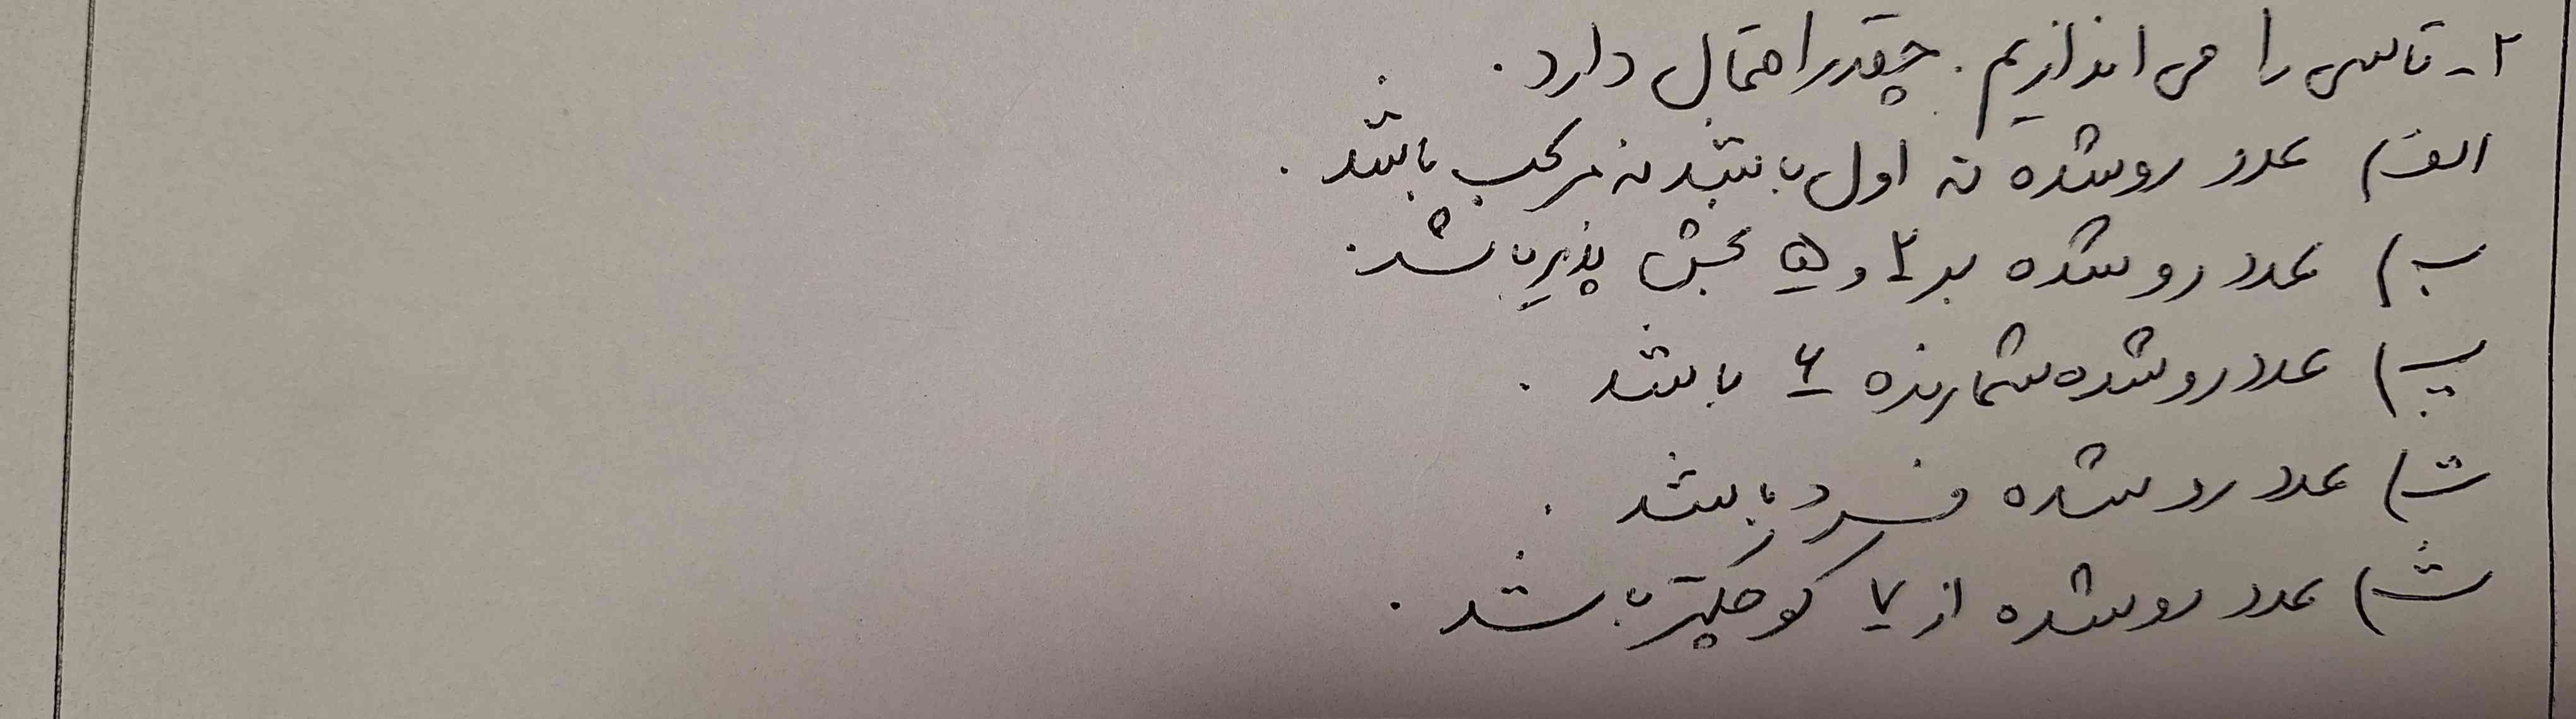 ۲- تاسی را می اندازیم. چقدر احتمال دارد.
الف) عدد رو شده نه اول باشد نه مرکب باشد.
ب) عدد رو شده بر ۲ و ۵ بخش پذیر باشد.
پ) عدد رو شده شمارنده ۶ باشد.
ت) عدد رو شده فرد باشد.
ث) عدد رو شده از ۷ کوچکتر باشد.